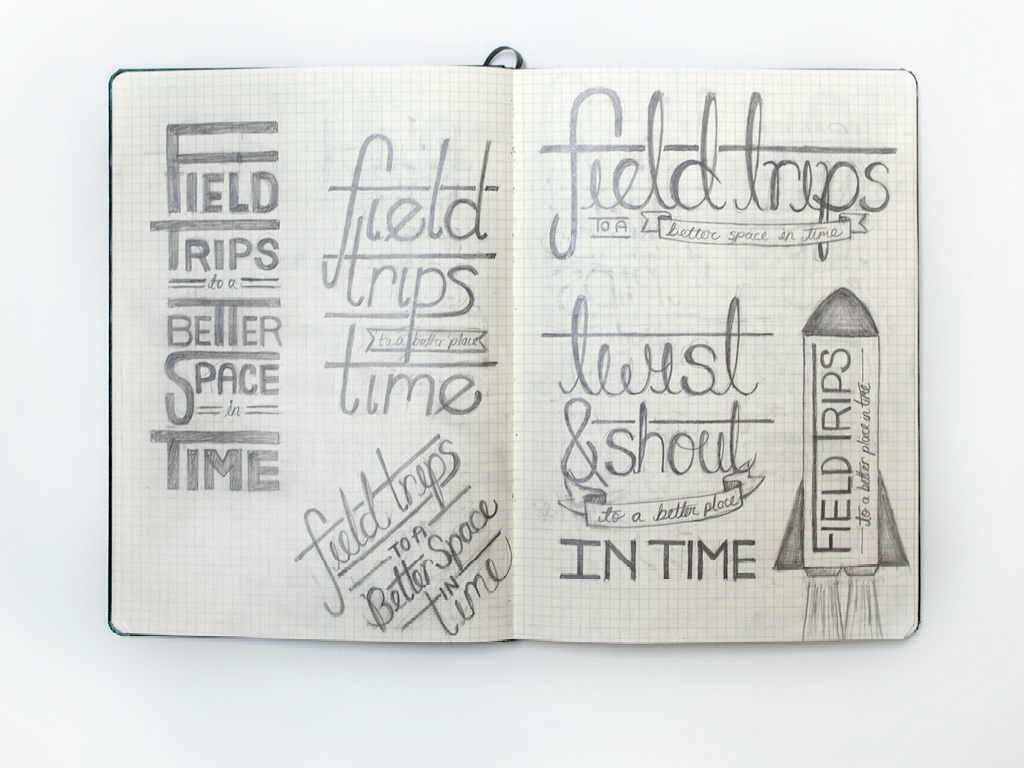 FIELD
TRIPS
to a
BETTER
SPACE
in
TIME
field
trips
to a better place
time
field trips
TO A
Better Space
IN
time
field trips
TO A
better space in time
twist
& shout
to a better place
IN TIME
FIELD TRIPS
to a better place in time